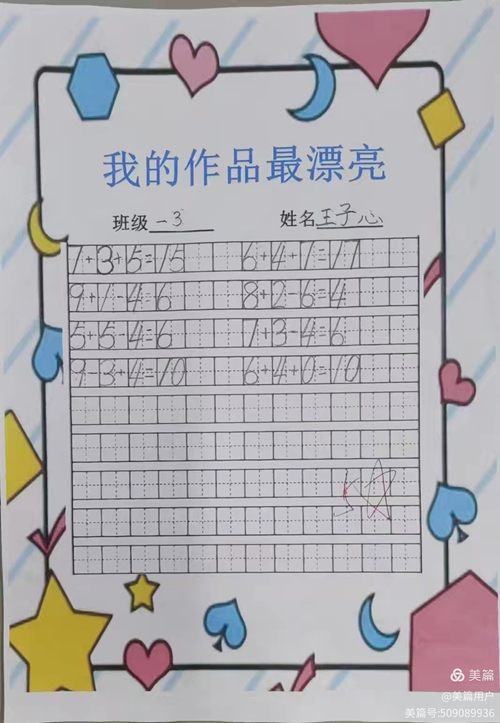 我的作品最漂亮
班级 一3 姓名 王子心
7+3+5=15 6+4+7=17
9+1-4=6 8+2-6=4
5+5-4=6 7+3-4=6
9-3+4=10 6+4+0=10
5☆
美篇
@美篇用户
美篇号:509089936